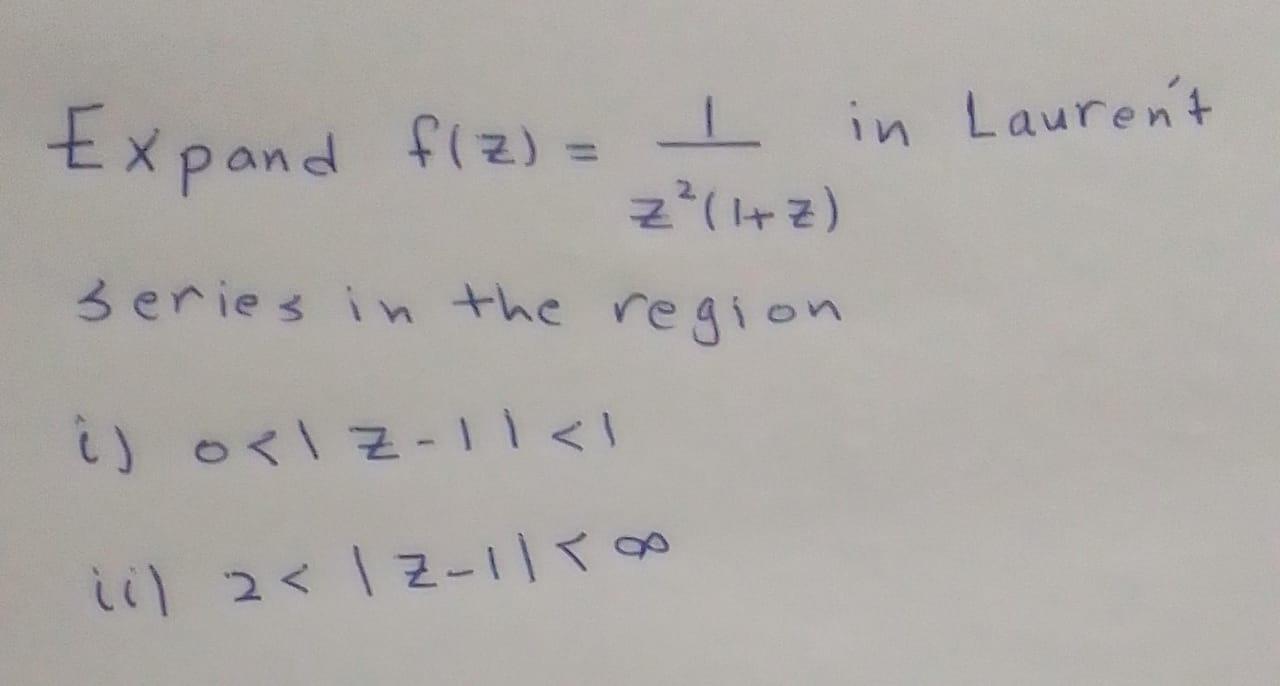 Expand f(z) = 1/z²(1+z) in Lauren't
series in the region
i) 0<|z-1|<1
ii) 2<|z-1|<∞